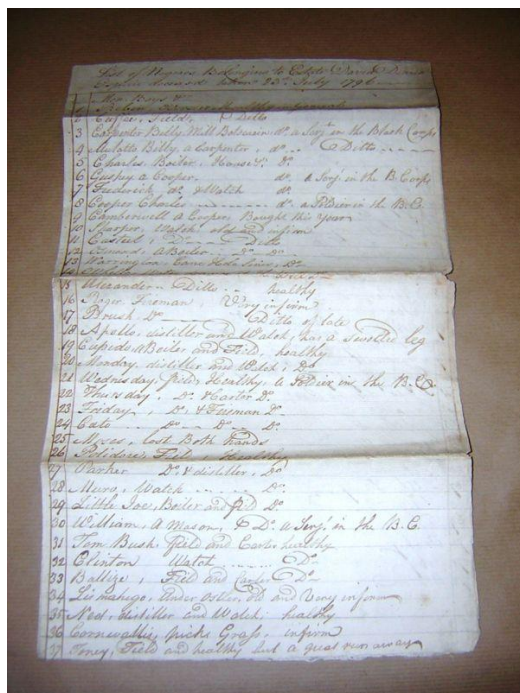 List of Negroes Belonging to Estate
taken 23d July 1796
Men Boys &
2 Cuffee, Field, Ditto
3 Carpenter Billy, Mill Boatswain, do. a Serjt. in the Black Corps
4 Mulatto Billy, a Carpenter, do. Ditto
5 Charles, Boiler, House &c. Do.
6 a Cooper, do. a Serjt. in the B. Corps
7 Frederick, do. & Watch do.
8 Cooper Charles do. a Soldier in the B. C.
9 Camberwell a Cooper, Bought this Year
10 Harper, Watch, old and infirm
11 Ditto
12 A Boiler Do. Do.
13 Warrington, Cane Hole
15 Alexander Ditto healthy
16 Roger, Fireman, Very infirm
17 Brush, Do. Ditto of late
18 Apollo, distiller and Watch, has a Swelled leg
19 Cupid, a Boiler and Field, healthy
20 Monday, distiller and Watch, Do.
21 Wednesday, field, Healthy, a Soldier in the B. C.
22 Thursday, Do. & Carter Do.
23 Friday, Do. & Fireman Do.
24 Cato Do. Do. Do.
25 Moses, lost Both hands
26 Polidore, Field, Healthy
27 Parker Do. & distiller, Do.
28 Mars, Watch Do.
29 Little Joe, Boiler and field Do.
30 William, a Mason, & Do. a Serjt. in the B. C.
31 Tom Bush, Field and Carter, healthy
32 Clinton Watch Do.
33 Field and Carter Do.
34 Lismahago, Under Ostler, old and Very infirm
35 Ned, distiller and Watch, healthy
36 Cornwallis, picks Grass, infirm
37 Toney, Field and healthy but a great run away